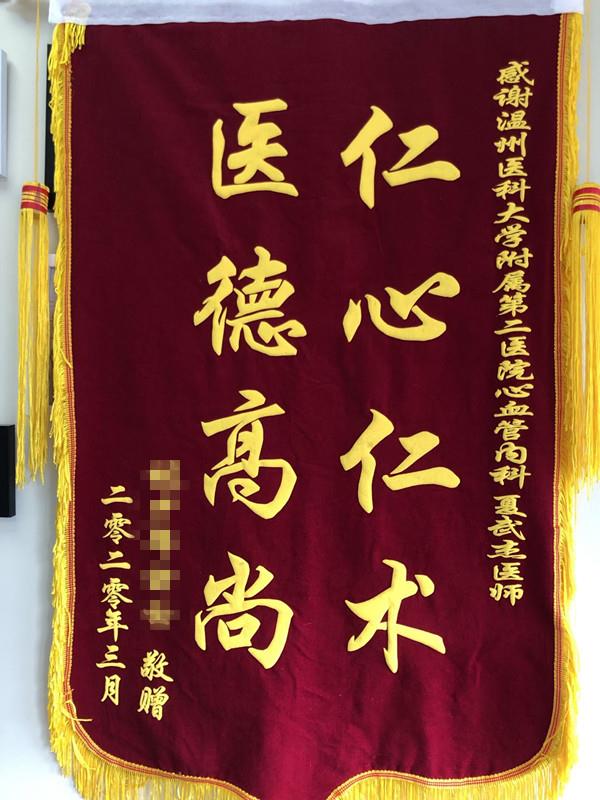 感谢温州医科大学附属第二医院心血管内科夏武杰医师
仁心仁术
医德高尚
敬赠
二零二零年三月